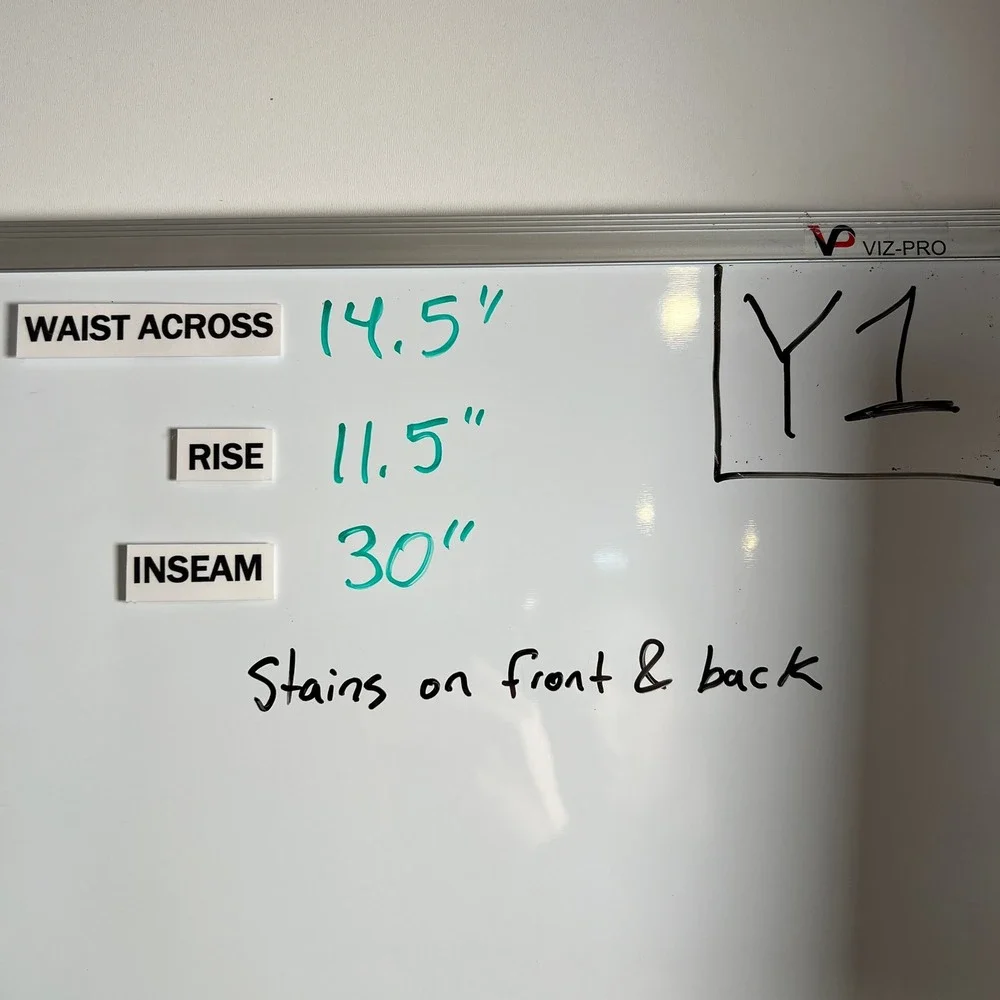 VP VIZ-PRO
WAIST ACROSS 14.5"
Y1
RISE 11.5"
INSEAM 30"
Stains on front & back